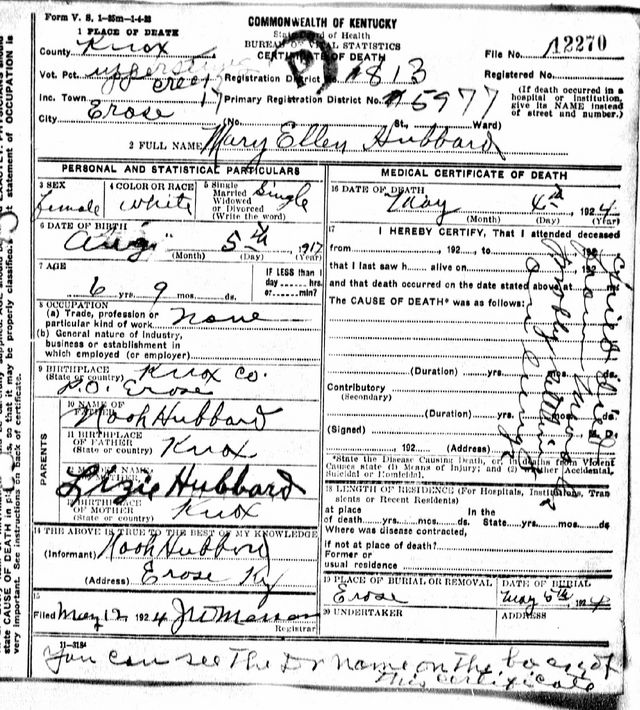 Form V. S. 1-35m-1-4-23
COMMONWEALTH OF KENTUCKY
State Board of Health
BUREAU OF VITAL STATISTICS
CERTIFICATE OF DEATH
1 PLACE OF DEATH
County Knox
File No. 12270
Vot. Pct. Creek Registration District No. 813 Registered No.
Inc. Town 17 Primary Registration District No. 5977
(If death occurred in a hospital or institution, give its NAME instead of street and number.)
City Erose (No. St., Ward)
2 FULL NAME Mary Ellen Hubbard
PERSONAL AND STATISTICAL PARTICULARS
3 SEX female
4 COLOR OR RACE white
5 Single Married Widowed or Divorced (Write the word) Single
6 DATE OF BIRTH
Aug 5th 1917
(Month) (Day) (Year)
7 AGE
6 yrs. 9 mos. ds.
IF LESS than 1 day hrs. or min?
8 OCCUPATION
(a) Trade, profession or particular kind of work None
(b) General nature of industry, business or establishment in which employed (or employer)
9 BIRTHPLACE Knox Co.
(State or country) P.O. Erose
PARENTS
10 NAME OF FATHER Noah Hubbard
11 BIRTHPLACE OF FATHER Knox
(State or country)
12 MAIDEN NAME Lizie Hubbard
13 BIRTHPLACE OF MOTHER Knox
(State or country)
14 THE ABOVE IS TRUE TO THE BEST OF MY KNOWLEDGE
(Informant) Noah Hubbard
(Address) Erose Ky
15
Filed May 12 1924
Registrar
11-3184
MEDICAL CERTIFICATE OF DEATH
16 DATE OF DEATH
May 4th 1924
(Month) (Day) (Year)
17 I HEREBY CERTIFY, That I attended deceased
from 192 to 192
that I last saw h alive on 192
and that death occurred on the date stated above at m.
The CAUSE OF DEATH* was as follows:
(Duration) yrs. mos. ds.
Contributory
(Secondary)
(Duration) yrs. mos. ds.
(Signed) M. D.
192 (Address)
*State the Disease Causing Death, or, in deaths from Violent Causes state (1) Means of Injury; and (2) Accidental, Suicidal or Homicidal.
18 LENGTH OF RESIDENCE (For Hospitals, Institutions, Transients or Recent Residents)
at place of death yrs. mos. ds. In the State yrs. mos. ds.
Where was disease contracted, if not at place of death?
Former or usual residence
19 PLACE OF BURIAL OR REMOVAL
Erose
DATE OF BURIAL
May 5th 1924
20 UNDERTAKER
ADDRESS
You can see the Dr name on the back of
this certificate
state CAUSE OF DEATH in
so that it may be properly classified.
statement of OCCUPATION is
very important. See instructions on back of certificate.